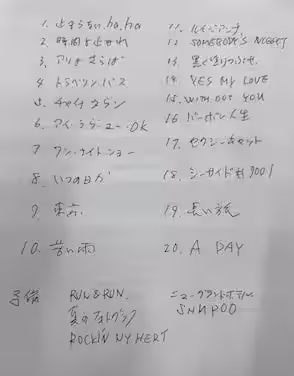 1. 止まらない ha.ha
2. 時間よ止まれ
3. アリよさらば
4. トラベリン・バス
5. チャイナタウン
6. アイ・ラヴ・ユー・OK
7 ワン・ナイト・ショー
8. いつの日か
9. 東京
10. 苦い雨
11. ルイジアンナ
12 SOMEBODY'S NIGHT
13 黒く塗りつぶせ
14 YES MY LOVE
15. WITH OUT YOU
16. バーボン人生
17. セクシーキャット
18. シーサイド
19. 長い旅
20. A DAY
予備 RUN & RUN.
夏のフォトグラフ
ROCKIN' MY HERT
ニューグランドホテル